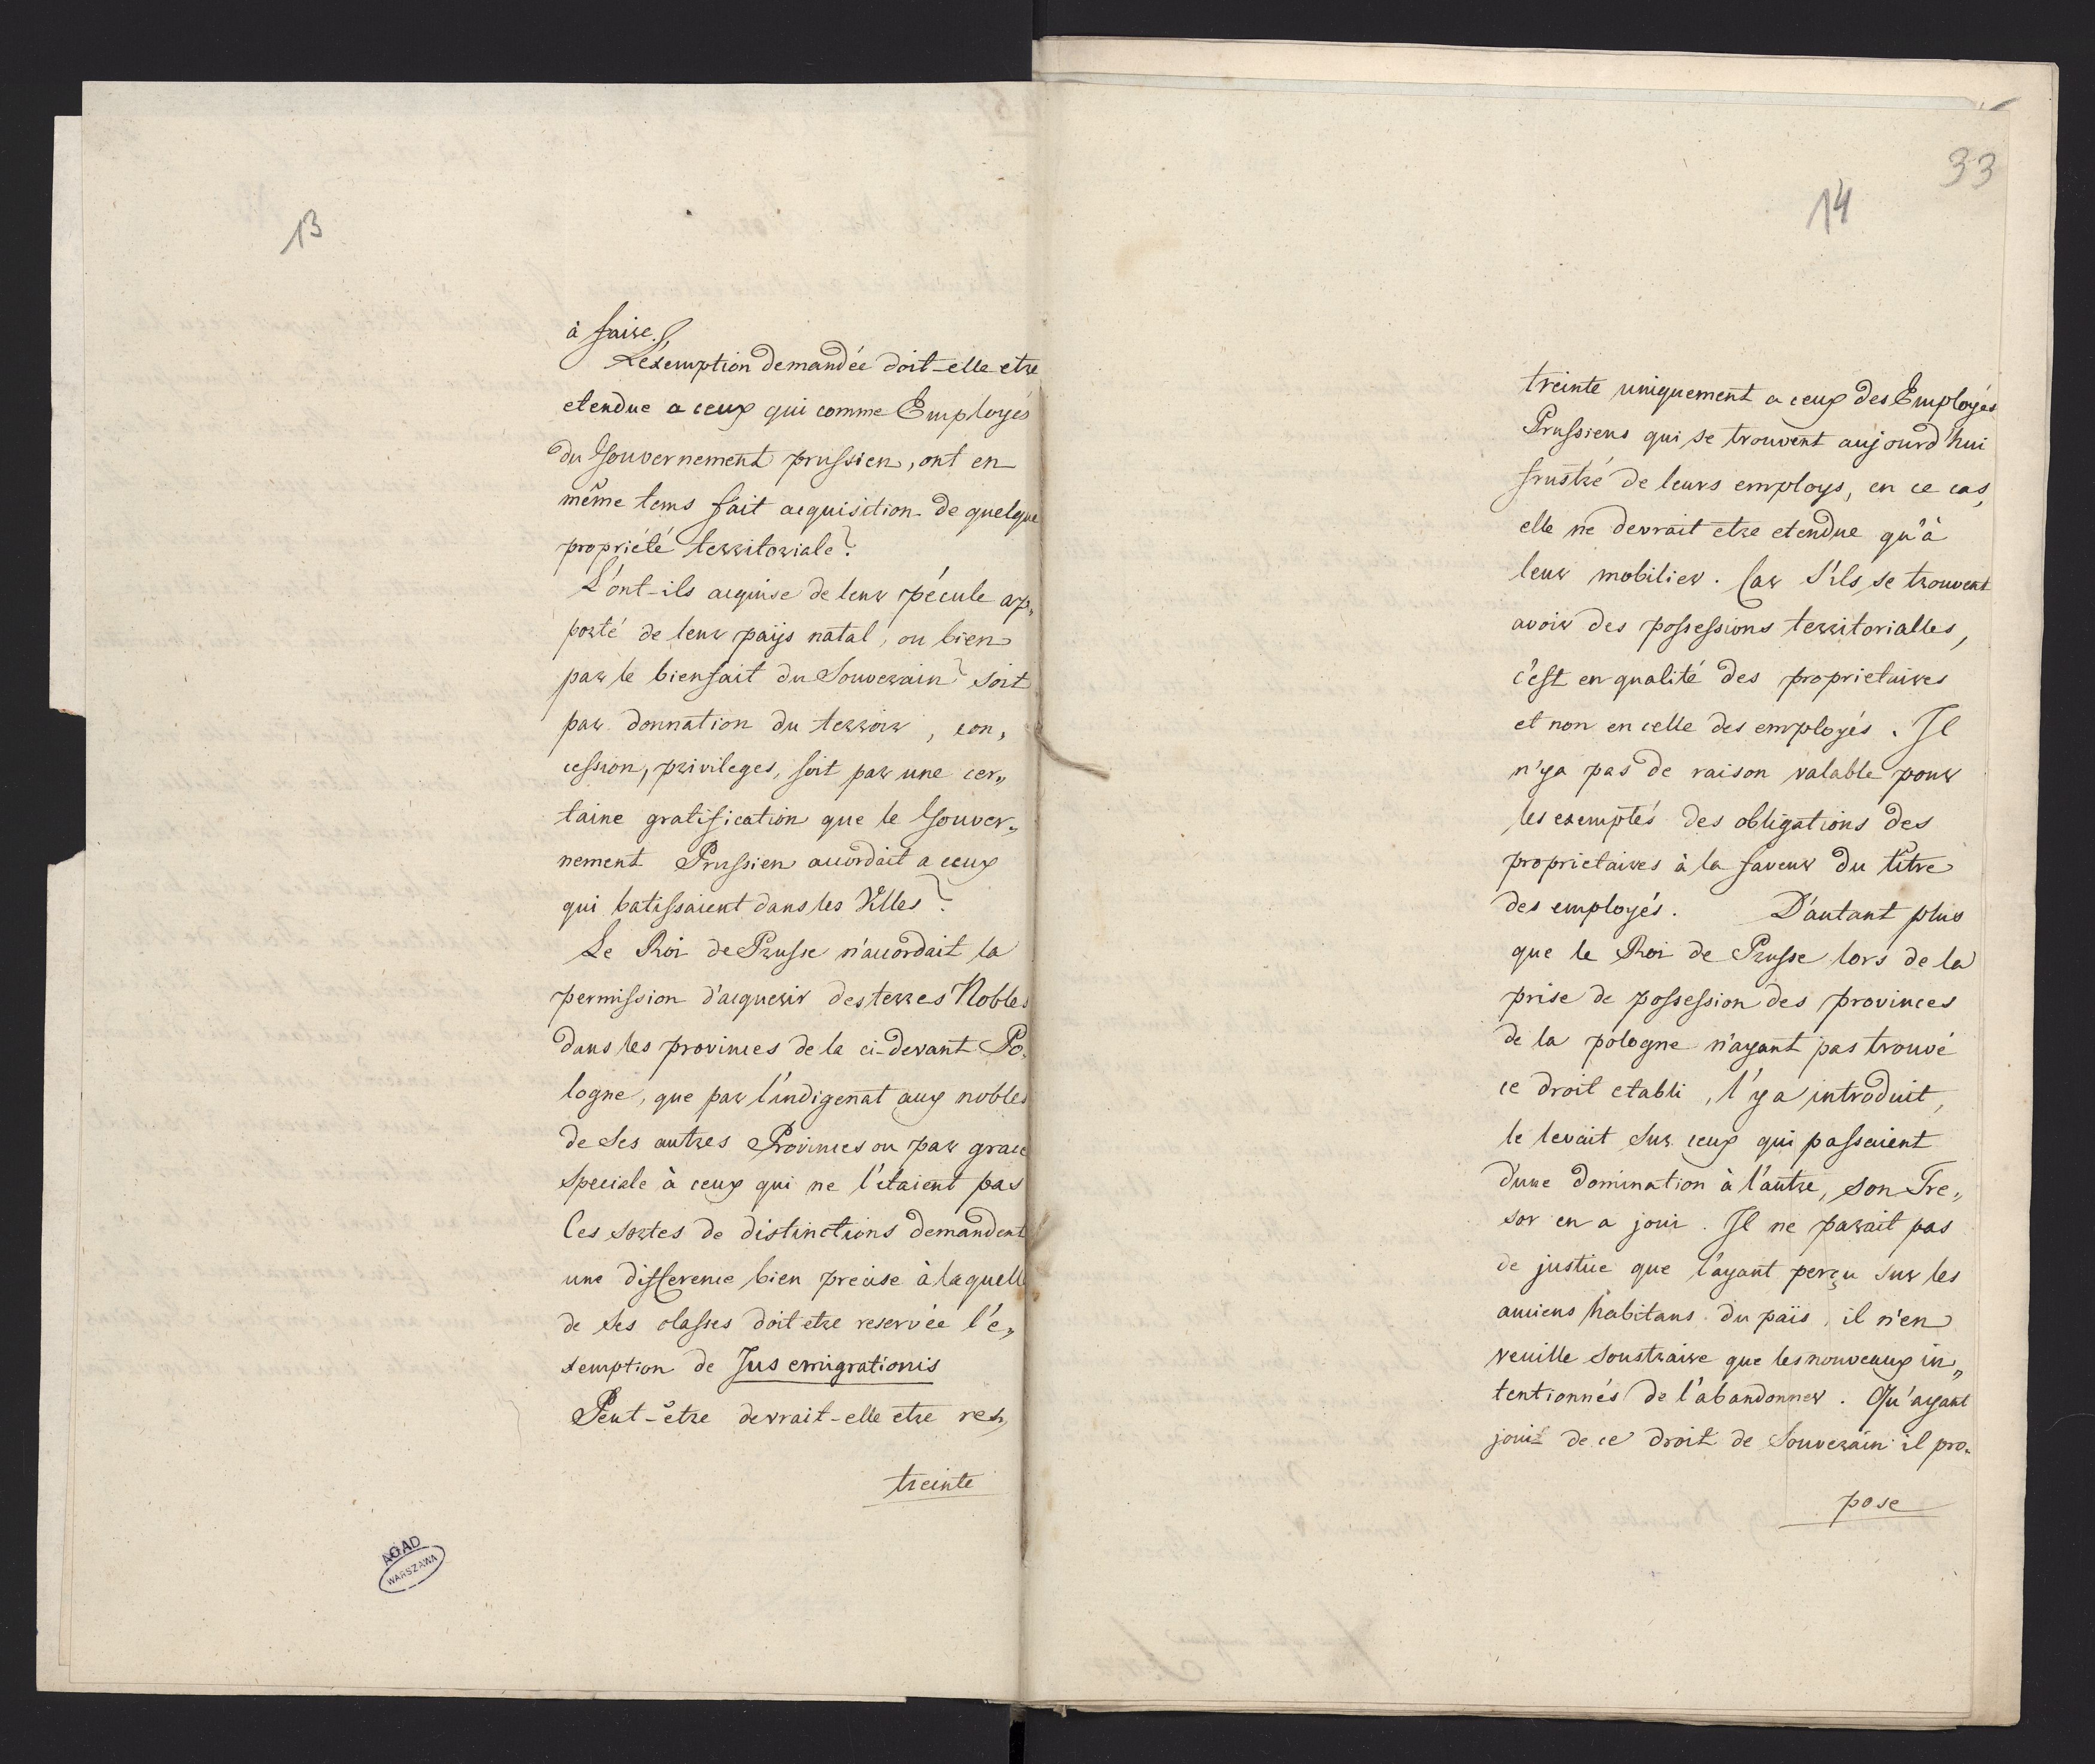 13
à faire.
L'éxemption demandée doit-elle etre
etendue a ceux qui comme Employés
du Gouvernement prussien, ont en
même tems fait acquisition de quelque
propriété territoriale?
L'ont-ils acquise de leur pécule ap„
porté de leur païs natal, ou bien
par le bienfait du Souverain? soit
par donnation du terroir, con„
cession, privileges, soit par une cer„
taine gratification que le Gouver„
nement Prussien accordait a ceux
qui batissaient dans les Villes?
Le Roi de Prusse n'accordait la
permission d'acquerir des terres Nobles
dans les provinces de la ci-devant Po„
logne, que par l'indigenat aux nobles
de ses autres Provinces ou par grace
speciale à ceux qui ne l'etaient pas
Ces sortes de distinctions demandent
une difference bien precise à laquelle
de ses classes doit etre reservée l'e„
xemption de Jus emigrationis
Peut-être devrait-elle etre res„
treinte
AGAD
WARSZAWA
33
14
treinte uniquement a ceux des Employés
Prussiens qui se trouvent aujourd'hui
frustré de leurs employs, en ce cas,
elle ne devrait etre etendue qu'à
leur mobilier. Car s'ils se trouvent
avoir des possessions territorialles,
c'est en qualité des proprietaires
et non en celle des employés. Il
n'ya pas de raison valable pour
les exemptés des obligations des
proprietaires à la faveur du titre
des employés. D'autant plus
que le Roi de Prusse lors de la
prise de possession des provinces
de la pologne n'ayant pas trouvé
ce droit etabli, l'y a introduit,
le levait sur ceux qui passaient
d'une domination à l'autre, son Tre„
sor en a joui. Il ne parait pas
de justice que l'ayant perçu sur les
anciens habitans du païs, il n'en
veuille soustraire que les nouveaux in„
tentionnés de l'abandonner. Qu'ayant
jouit de ce droit de Souverain il pro„
pose